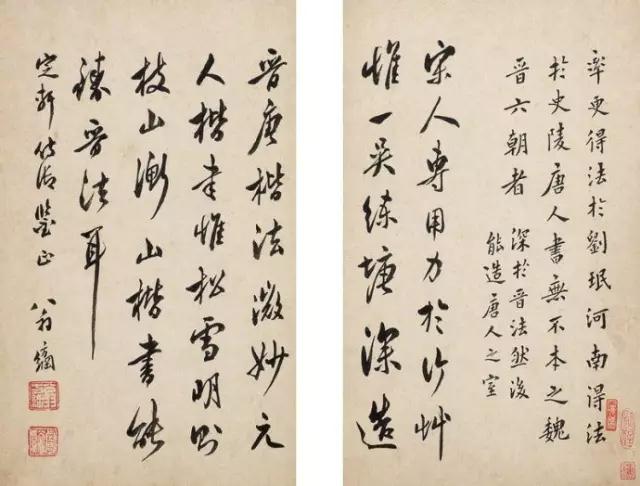 率更得法於劉珉河南得法
於史陵唐人書無不本之魏
晉六朝者深於晉法然後
能造唐人之室
宋人專用力於行艸
惟一吳練塘深造
晉唐楷法微妙元
人楷書惟松雪明則
枝山衡山楷書能
臻晉法耳
定軒侍御鑒正
八翁